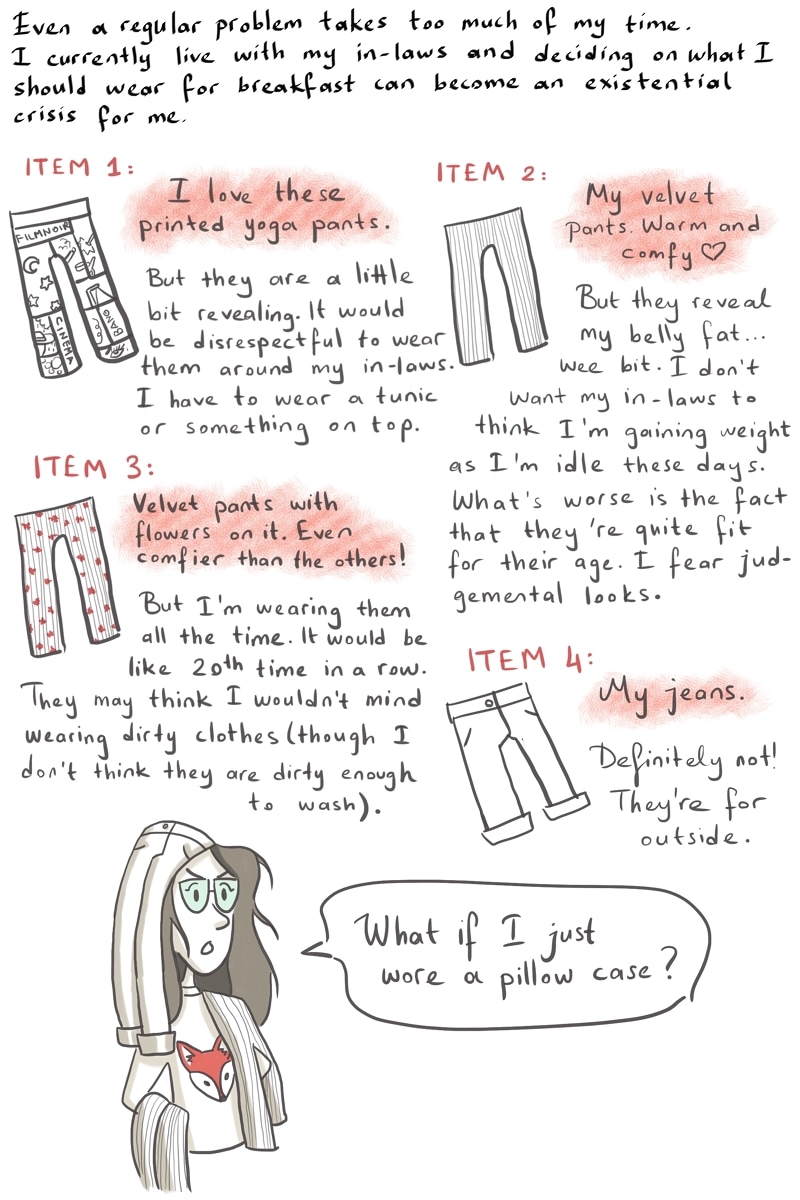 Even a regular problem takes too much of my time.
I currently live with my in-laws and deciding on what I
should wear for breakfast can become an existential
crisis for me.
ITEM 1:
I love these
printed yoga pants.
FILMNOIR
CINEMA
BANG
But they are a little
bit revealing. It would
be disrespectful to wear
them around my in-laws.
I have to wear a tunic
or something on top.
ITEM 2:
My velvet
pants. Warm and
comfy ♡
But they reveal
my belly fat...
wee bit. I don't
want my in-laws to
think I'm gaining weight
as I'm idle these days.
What's worse is the fact
that they're quite fit
for their age. I fear jud-
gemental looks.
ITEM 3:
Velvet pants with
flowers on it. Even
comfier than the others!
But I'm wearing them
all the time. It would be
like 20th time in a row.
They may think I wouldn't mind
wearing dirty clothes (though I
don't think they are dirty enough
to wash).
ITEM 4:
My jeans.
Definitely not!
They're for
outside.
What if I just
wore a pillow case?